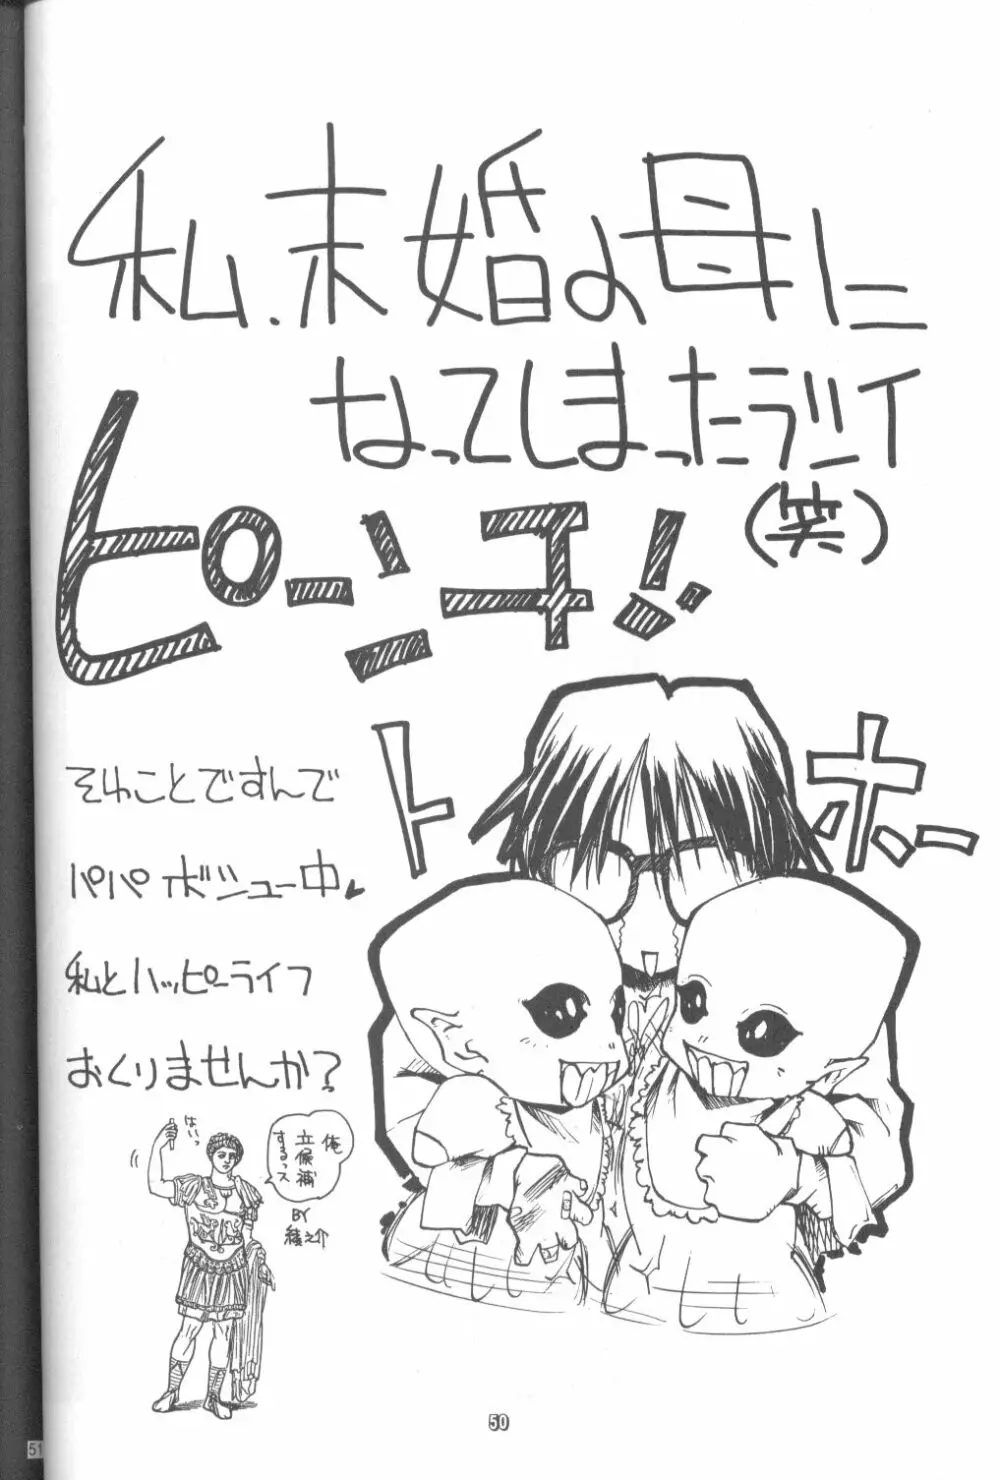 私、未婚の母に
なってしまったラシイ
(笑)
ピーンチ!!
トホホー
そゆことですんで
パパボシュー中
私とハッピーライフ
おくりませんか?
はいっ
俺
立候補
するっス
BY
綾之介
50
51